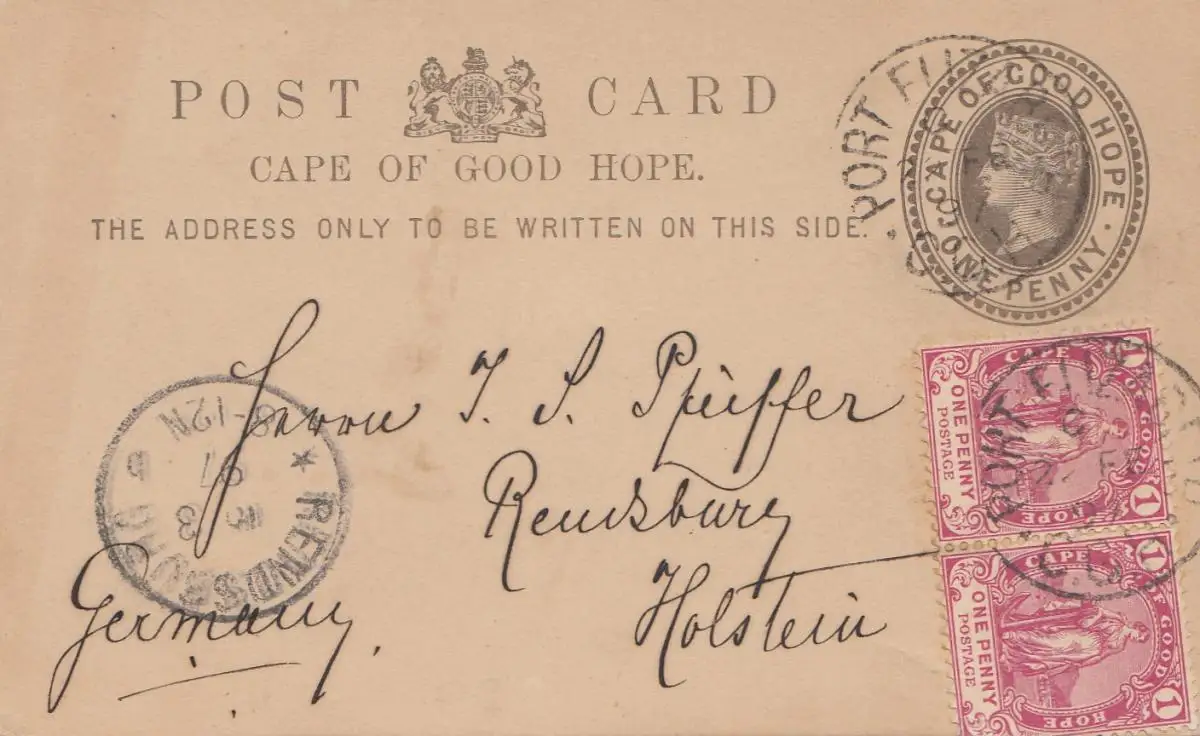 POST CARD
CAPE OF GOOD HOPE.
THE ADDRESS ONLY TO BE WRITTEN ON THIS SIDE.
CAPE OF GOOD HOPE
ONE PENNY
PORT ELIZ
Herrn J. S. Pfeiffer
Rendsburg
Holstein
Germany.
RENDSBURG
13 3
97
8-12N
CAPE OF GOOD HOPE
ONE PENNY
POSTAGE
1
1
PORT ELIZ
CAPE OF GOOD HOPE
ONE PENNY
POSTAGE
1
1